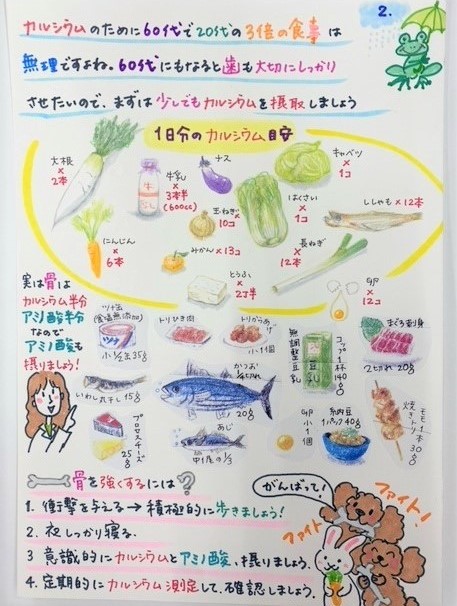 2.
カルシウムのために60代で20代の3倍の食事は
無理ですよね。60代にもなると歯も大切にしっかり
させたいので、まずは少しでもカルシウムを摂取しましょう
1日分のカルシウム目安
大根
×
2本
牛乳
×
3本半
(600cc)
ナス
キャベツ
×
1コ
玉ねぎ
×
10コ
はくさい
×
1コ
ししゃも×12本
にんじん
×
6本
みかん×13コ
長ねぎ
×
12本
とうふ
×
2丁半
卵
×
12コ
実は骨は
カルシウム半分
アミノ酸半分
なので
アミノ酸も
摂りましょう!
ツナ缶
(食塩無添加)
ツナ
小1/2缶35g
トリひき肉
トリからあげ
小1個
無調整豆乳
コップ1杯140g
まぐろ刺身
2切れ20g
いわし丸干し15g
かつお
20g
プロセスチーズ
25g
あじ
中1尾の1/3
卵
小
1個
納豆
1パック40g
焼きトリモモ1本30g
骨を強くするには?
1. 衝撃を与える→積極的に歩きましょう!
2. 夜しっかり寝る。
3 意識的にカルシウムとアミノ酸、摂りましょう。
4. 定期的にカルシウム測定して、確認しましょう。
がんばって!
ファイト!
ファイト